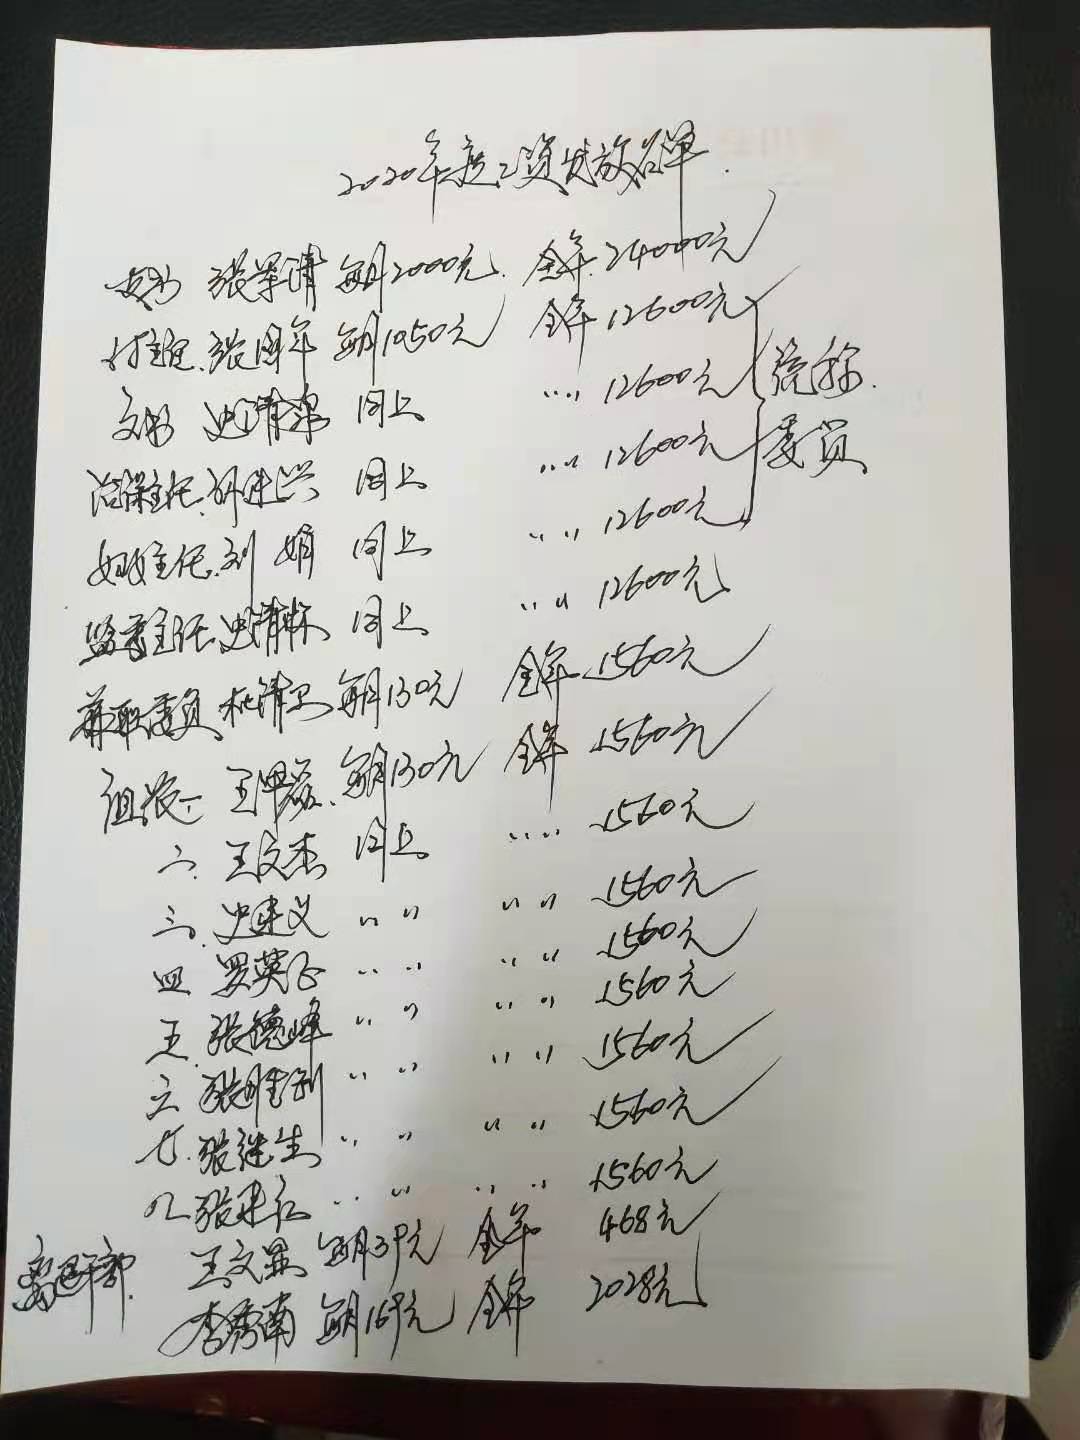 2020年度工资发放名单.
支书 张军清 每月2000元. 全年.24000元
村主任.张周年 每月1050元 全年12600元
文书 史清泉 同上 〃〃12600元 统称.
治保主任.孙建兴 同上 〃〃12600元 委员
妇女主任.刘娟 同上 〃〃12600元
监委主任 史清林 同上 〃〃12600元
兼职委员 杜清卫 每月130元 全年1560元
组长一 王 每月130元 全年1560元
二.王文杰 同上 〃〃1560元
三.史建义 〃〃 〃〃1560元
四 罗英正 〃〃 〃〃1560元
五.张德峰 〃〃 〃〃1560元
六 张胜利 〃〃 〃〃1560元
七.张继生 〃〃 〃〃1560元
八 张建仁 〃〃 〃〃1560元
离退干部. 王文显 每月39元 全年 468元
李秀南 每月169元 全年 2028元